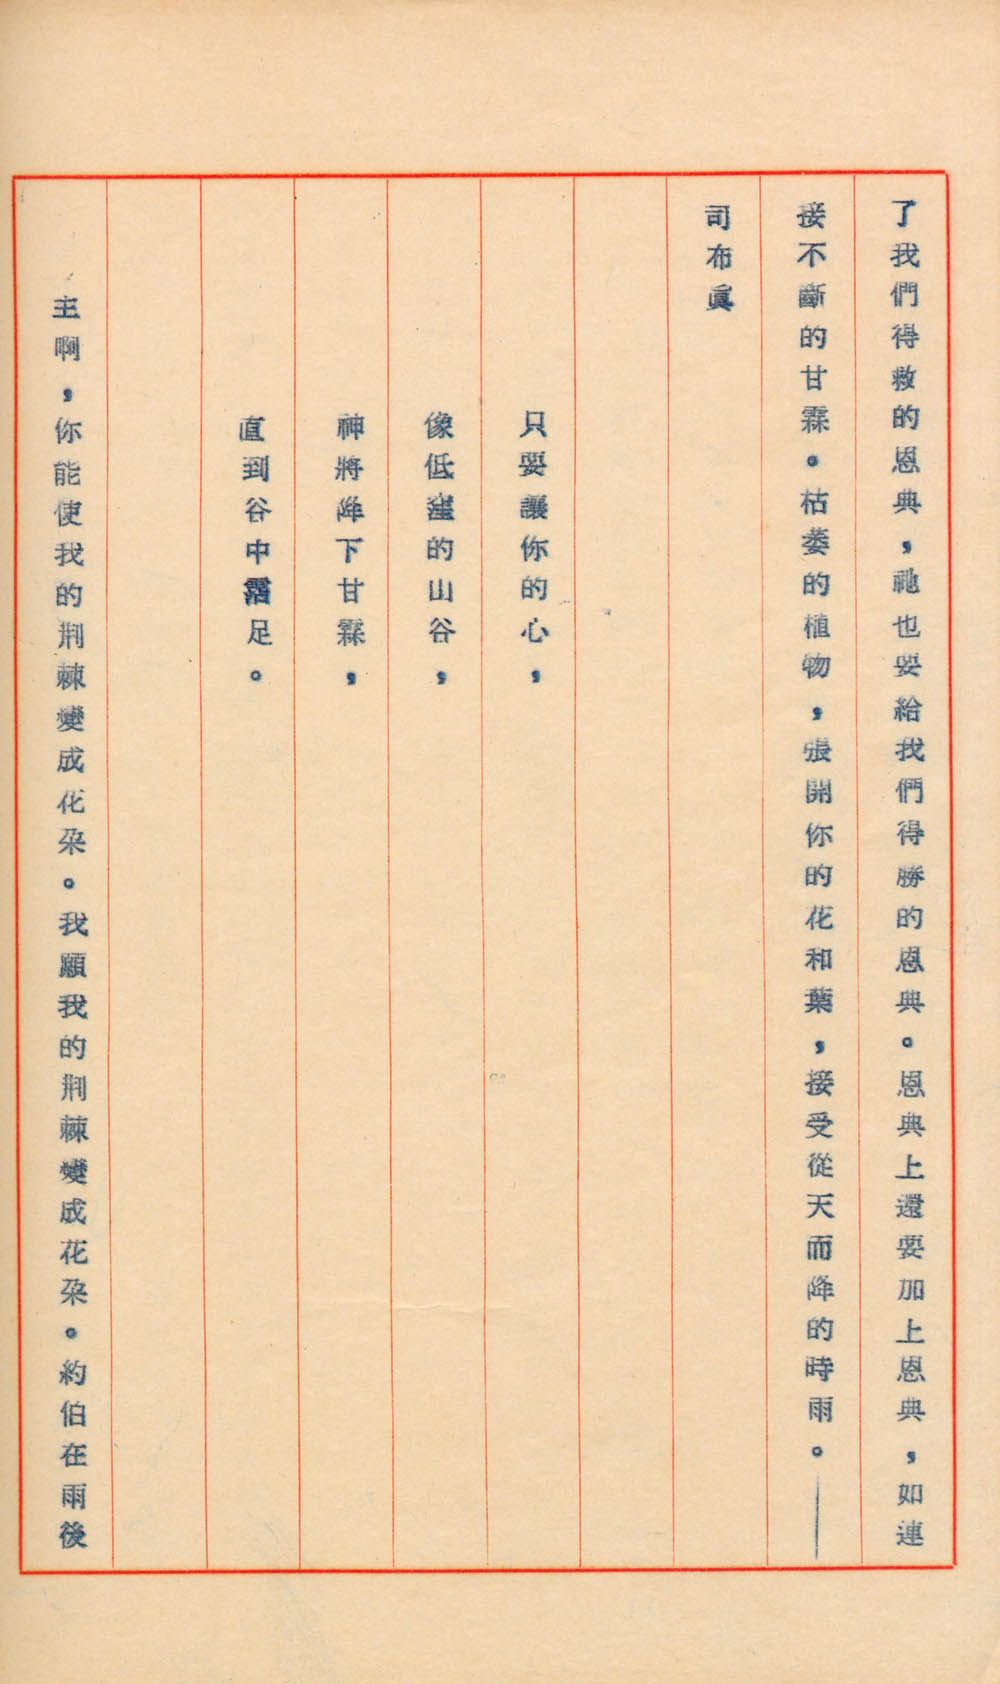 了我們得救的恩典，祂也要給我們得勝的恩典。恩典上還要加上恩典，如連
接不斷的甘霖。枯萎的植物，張開你的花和葉，接受從天而降的時雨。——
司布眞
只要讓你的心，
像低窪的山谷，
神將降下甘霖，
直到谷中霑足。
主啊，你能使我的荆棘變成花朶。我願我的荆棘變成花朶。約伯在雨後